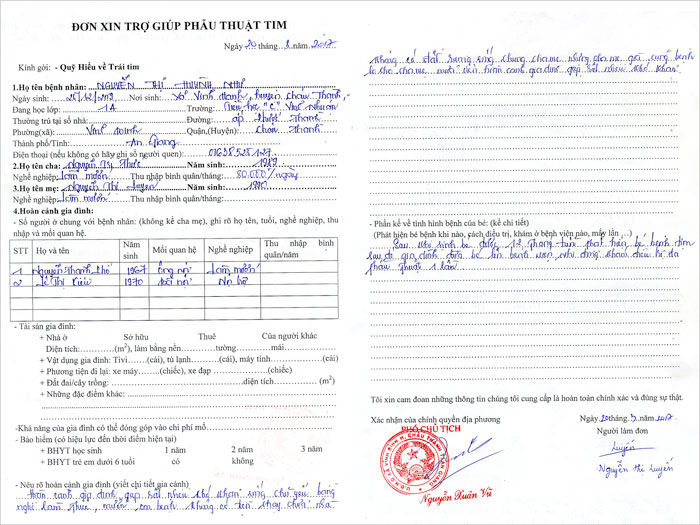 ĐƠN XIN TRỢ GIÚP PHẪU THUẬT TIM
Ngày 20 tháng 2 năm 2017
Kính gởi: - Quỹ Hiểu về Trái tim
1.Họ tên bệnh nhân: NGUYỄN THỊ HUỲNH NHƯ
Ngày sinh: Nơi sinh: xã Vĩnh Hanh, huyện Châu Thành,
Đang học lớp: 1A Trường: Tiểu học "C" Vĩnh
Thường trú tại số nhà: Đường: ấp Thành
Phường(xã): Vĩnh Quận,(Huyện): Châu Thành
Thành phố/Tỉnh: An Giang
Điện thoại (nếu không có hãy ghi số người quen): 01638528127
2.Họ tên cha: Nguyễn Năm sinh: 1989
Nghề nghiệp: Làm mướn Thu nhập bình quân/tháng: 80.000/ngày
3.Họ tên mẹ: Nguyễn Thị Luyến Năm sinh: 1990
Nghề nghiệp: Làm mướn Thu nhập bình quân/tháng:
4.Hoàn cảnh gia đình:
- Số người ở chung với bệnh nhân: (không kể cha mẹ), ghi rõ họ tên, tuổi, nghề nghiệp, thu
nhập và mối quan hệ.
STT Họ và tên Năm sinh Mối quan hệ Nghề nghiệp Thu nhập bình quân/năm
1 Nguyễn Thanh 1967 Ông nội Làm mướn
2 Lê Thị 1970 Bà nội Nội trợ
- Tài sản gia đình:
+ Nhà ở Sở hữu Thuê Của người khác
Diện tích:..........(m²), làm bằng nền..........tường..........mái..........
+ Vật dụng gia đình: Tivi......(cái), tủ lạnh......(cái), máy tính..........(cái)
+ Phương tiện đi lại: xe máy ......(chiếc), xe đạp ..........(chiếc)
+ Đất đai/cây trồng: ..........diện tích .......... (m²)
+ Những đặc điểm khác: ..........
-Khả năng của gia đình có thể đóng góp vào chi phí mổ..........
- Bảo hiểm (có hiệu lực đến thời điểm hiện tại)
+ BHYT học sinh 1 năm 2 năm 3 năm
+ BHYT trẻ em dưới 6 tuổi có không
- Nêu rõ hoàn cảnh gia đình (viết chi tiết gia cảnh)
Hoàn cảnh gia đình gặp rất nhiều khó khăn sống chủ yếu bằng
nghề làm thuê, mướn,
không có đất sống chung cha mẹ
cha mẹ gia đình gặp rất nhiều khó khăn
- Phần kể về tình hình bệnh của bé: (kể chi tiết)
(Phát hiện bé bệnh khi nào, cách điều trị, khám ở bệnh viện nào, mấy lần ...)
Sau khi sinh bé được 12 tháng tuổi phát hiện bé bệnh tim
sau đó gia đình đưa bé lên bệnh viện nhi đồng khám điều trị đã
phẫu thuật 1 lần
Tôi xin cam đoan những thông tin chúng tôi cung cấp là hoàn toàn chính xác và đúng sự thật.
Xác nhận của chính quyền địa phương
Ngày 20 tháng 2 năm 2017
PHÓ CHỦ TỊCH
Người làm đơn
Luyến
Nguyễn Xuân Vũ
Nguyễn thị Luyến